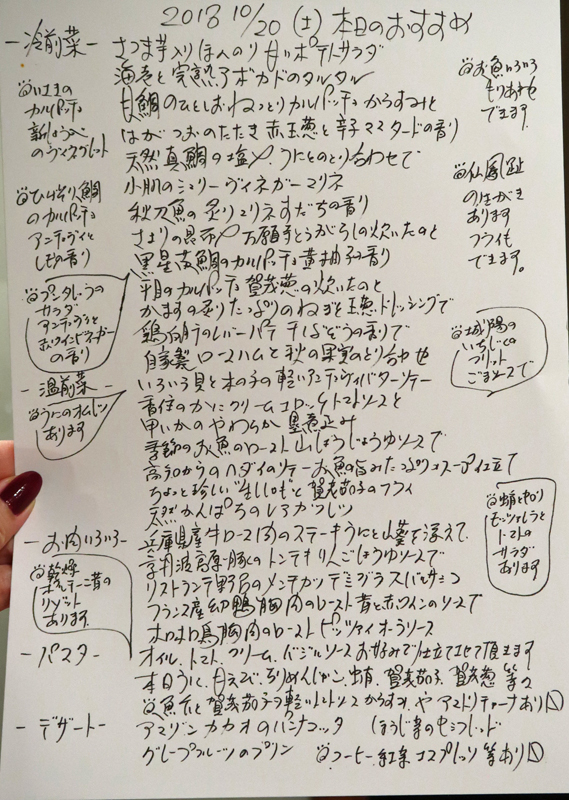 2018 10/20 (土) 本日のおすすめ
-冷前菜-
さつま芋入りほんのり甘いポテトサラダ
海老と完熟アボカドのタルタル
甘鯛のひとしおねっとりカルパッチョからすみと
はがつおのたたき 赤玉葱と辛子マスタードの香り
天然真鯛の塩〆 うにとのとり合わせで
小肌のシェリーヴィネガーマリネ
秋刀魚の炙りマリネすだちの香り
さよりの昆布〆 万願寺とうがらしの炊いたのと
黒星高鯛のカルパッチョ 黄柚子の香り
平目のカルパッチョ 賀茂葱の炊いたのと
かますの炙り たっぷりのねぎと玉葱ドレッシングで
鶏白肝のレバーパテ 干しぶどうの香りで
自家製ロースハムと秋の果実のとり合わせ
のカルパッチョ
新しょうがの
のヴィネグレット
ひかり鯛
のカルパッチョ
アンチョヴィと
しその香り
プンタレッラの
サラダ
アンチョヴィと
赤ワインビネガー
の香り
お魚いろいろ
もりあわせも
できます。
仏鳳趾
のはがき
あります
フライも
できます。
城陽の
いちじくの
フリット
ごまソースで
-温前菜-
うにのオムレツ
あります
いろいろ貝と木の子の軽いアンチョヴィバターソテー
香住のかにクリームコロッケトマトソースと
甲いかのやわらか墨煮込み
季節のお魚のロースト山しょうじょうゆソースで
高知からのハダイのソテー お魚の旨みたっぷりスープ仕立て
ちょっと珍しい"生しいも"と賀茂茄子のフライ
天然かんぱちのレアカツレツ
-お肉いろいろ-
兵庫県産牛ロース肉のステーキうにと山葵を添えて
京丹波高原豚のトンテキりんごしょうゆソースで
リストランテ野呂のメンチカツ デミグラスバルサミコ
フランス産幼鴨胸肉のロースト 青と赤ワインのソースで
ホロホロ鳥胸肉のローストピッツァイオーラソース
乾燥
ポルチーニ茸の
リゾット
あります
蛸と
モッツァレラと
トマトの
サラダ
あります
-パスタ-
オイル、トマト、クリーム、バジルソース お好みで仕立てさせて頂きます
本日うに、甘えび、ちりめんじゃこ、蛸、賀茂茄子、賀茂葱 等々
魚介と賀茂茄子の軽いトマトソース からすみ や アマトリチャーナあり〼
-デザート-
アマゾンカカオのパンナコッタ ほうじ茶のセミフレッド
グレープフルーツのプリン コーヒー、紅茶、エスプレッソ等あり〼